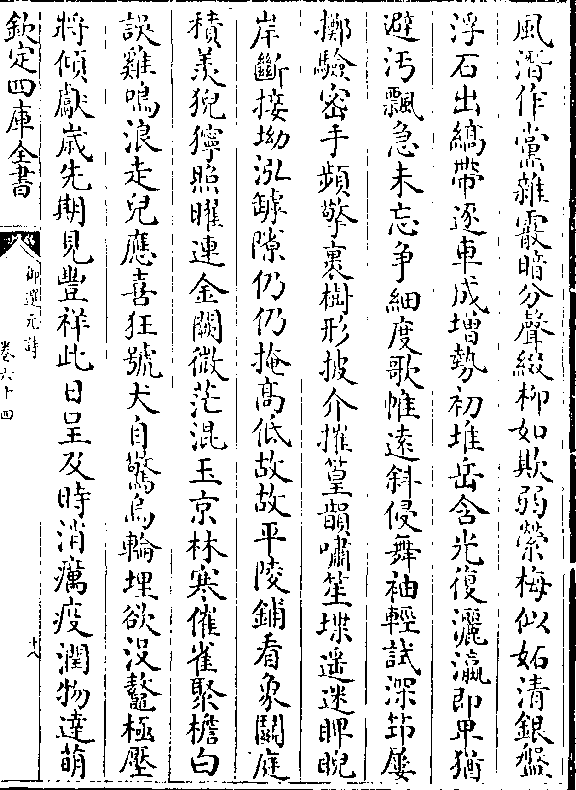 風潛作黨雜霰暗分聲綴柳如欺弱縈梅似妬清銀盤
浮石出縞帶逐車成增勢初堆岳含光復灑瀛即卑猶
避汚飄急未忘争細度歌帷遠斜侵舞袖輕試深笻屢
擲驗密手頻擎裹樹形披介摧篁韻嘯笙堞遥迷睥睨
岸斷接坳泓罅隙仍仍掩髙低故故平陵鋪看象鬭庭
積羨猊獰照曜連金闕微茫混玉京林寒催雀聚檐白
誤雞鳴浪走兒應喜狂號犬自驚烏輪埋欲没鼇極壓
將傾獻嵗先期見豐祥此日呈及時消癘疫潤物達萌
欽定四庫全書
御選元詩
卷六十四